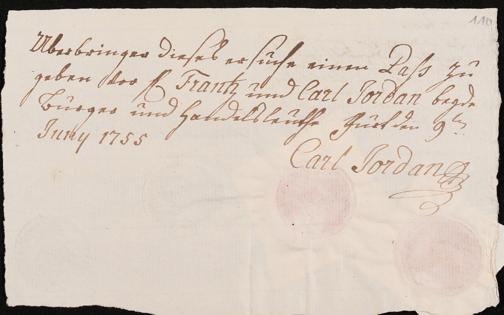 110
Uberbringer dieses ersuche einen Paß zu
geben vor Frantz und Carl Jordan beyde
Bürger und Handelsleuthe den 9t
Juny 1755
Carl Jordan